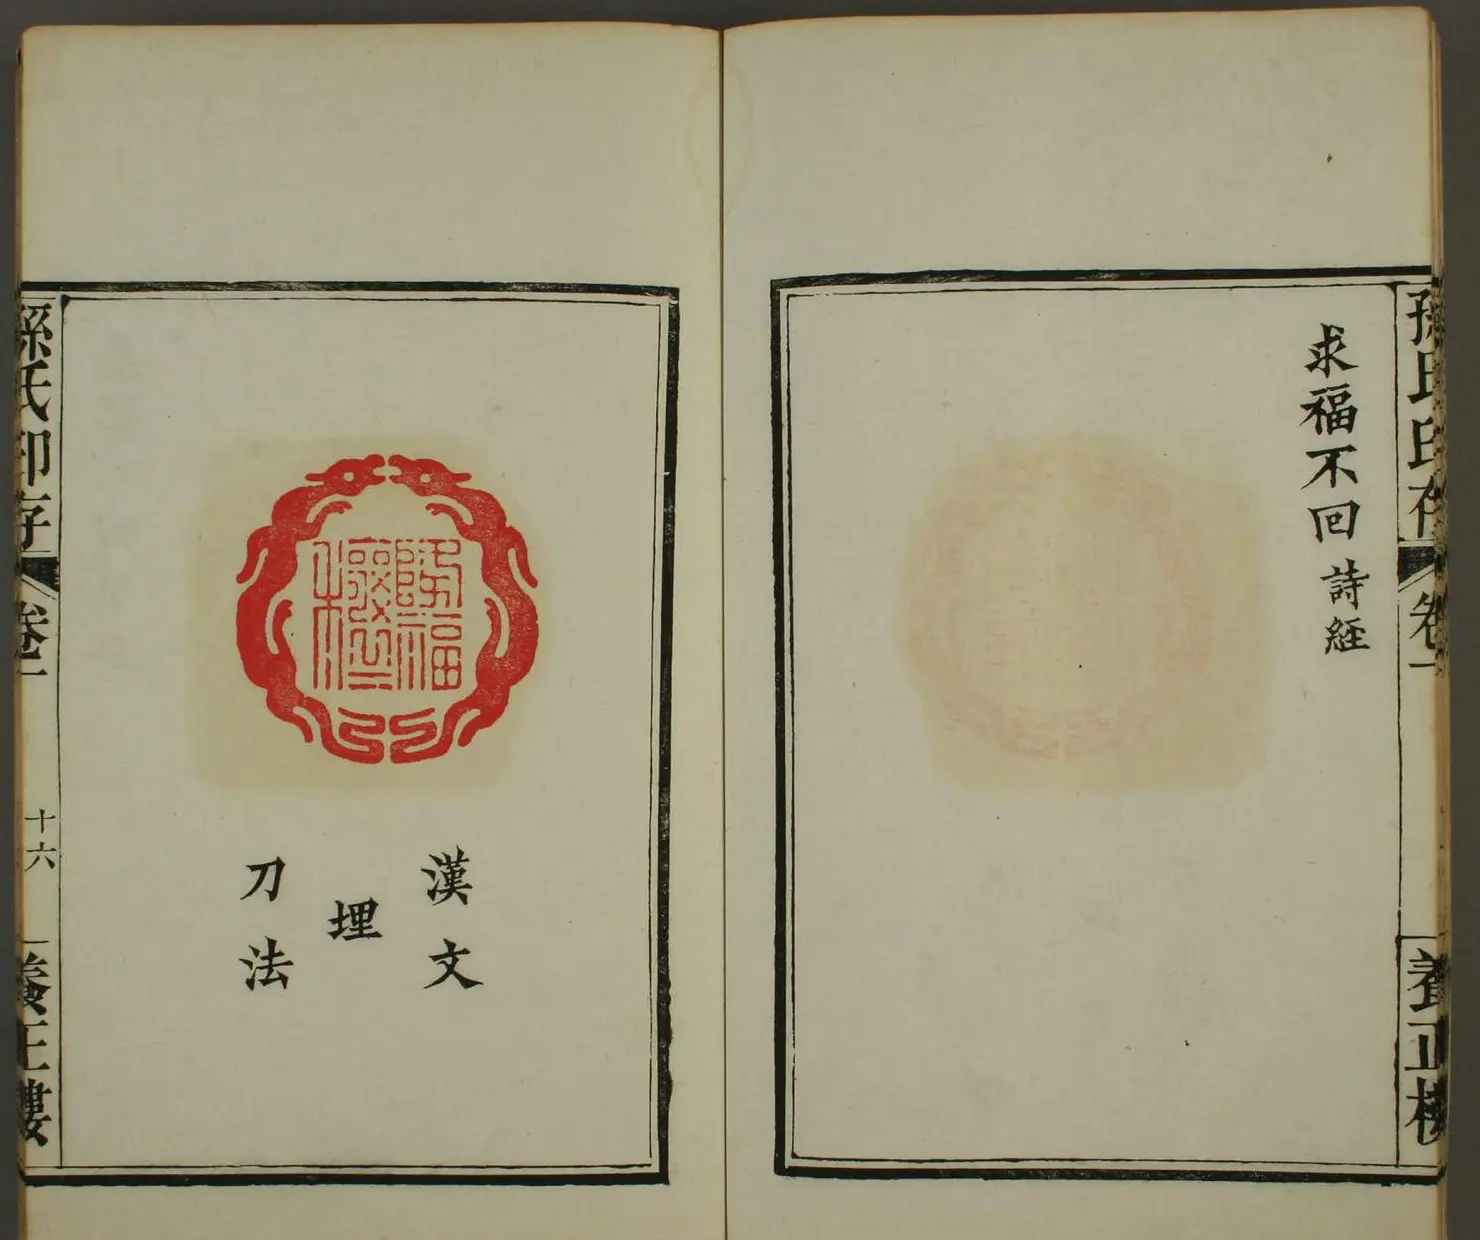 孫氏印存
卷一
養正樓
求福不回
詩經
漢文
埋
刀法
孫氏印存
卷一
十六
養正樓